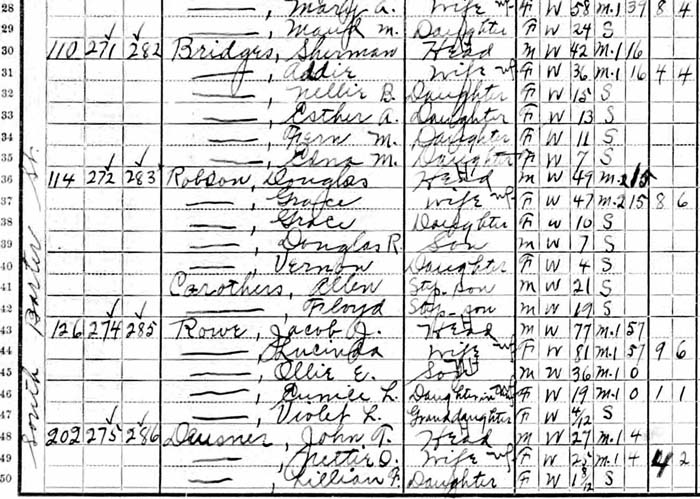 28 ——, Mary A. Wife F W 58 M.1 39 8 4
29 ——, Maud M. Daughter F W 24 S
30 110 271 282 Bridges, Sherman Head M W 42 M.1 16
31 ——, Addie Wife F W 36 M.1 16 4 4
32 ——, Nellie B. Daughter F W 15 S
33 ——, Esther A. Daughter F W 13 S
34 ——, Fern M. Daughter F W 11 S
35 ——, Edna M. Daughter F W 7 S
36 114 272 283 Robson, Douglas Head M W 49 M.2 15
37 ——, Grace Wife F W 47 M.2 15 8 6
38 ——, Grace Daughter F W 10 S
39 ——, Douglas R. Son M W 7 S
40 ——, Vernon Daughter F W 4 S
41 Carothers, Allen Step-son M W 21 S
42 ——, Floyd Step-son M W 19 S
43 126 274 285 Rowe, Jacob J. Head M W 77 M.1 57
44 ——, Lucinda Wife F W 81 M.1 57 9 6
45 ——, Ollie E. Son M W 36 M.1 0
46 ——, L. Daughter in F W 19 M.1 0 1 1
47 ——, Violet L. Granddaughter F W 4/12 S
48 202 275 286 Deusner, John T. Head M W 27 M.1 4
49 ——, Nettie D. Wife F W 25 M.1 4 4 2
50 ——, Lillian F. Daughter F W S
South St.